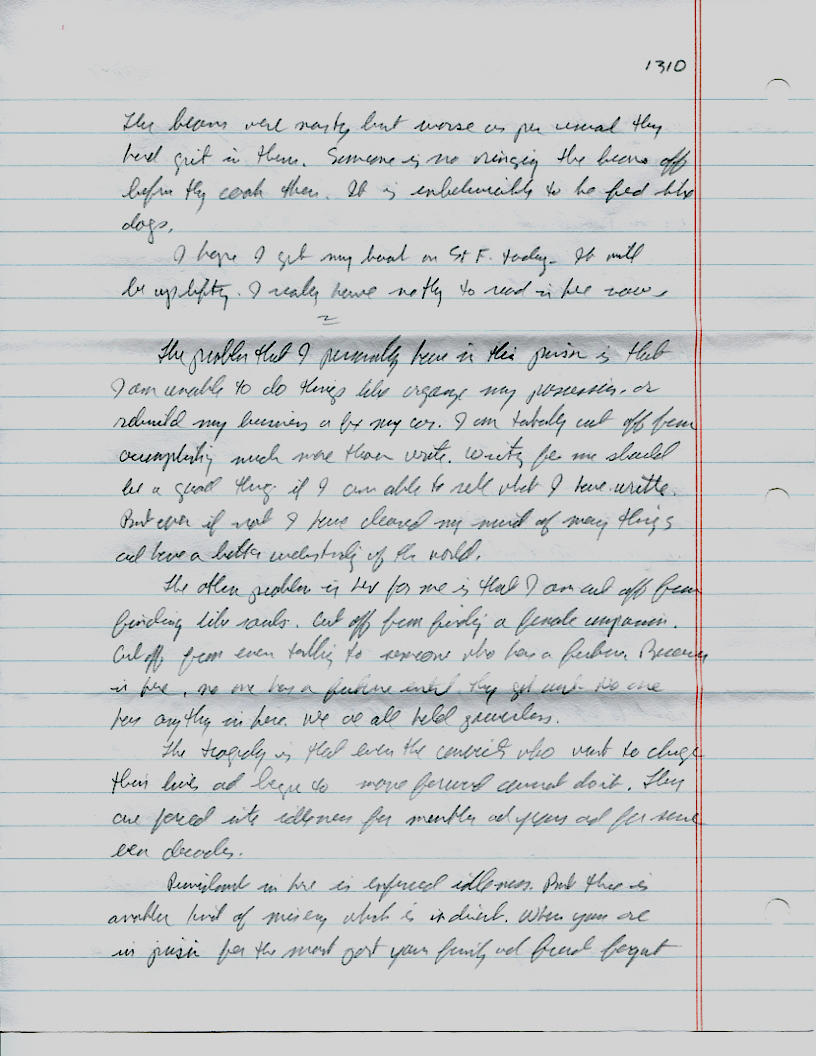 1310
The beans were nasty but worse as per usual they
had grit in them. Someone is no ringing the beans off
before they cook them. It is unbelievable to be fed like
dogs.
I hope I get my book on St F. today. It will
be uplifting. I really have nothing to read in here now.
The problem that I personally have in this prison is that
I am unable to do things like organize my possessions or
rebuild my business or fix my car. I am totally cut off from
accomplishing much more than write. Writing for me should
be a good thing if I am able to sell what I have written.
But even if not I have cleared my mind of many things
and have a better understanding of the world.
The other problem in here for me is that I am cut off from
finding like souls. Cut off from finding a female companion.
Cut off from even talking to someone who has a future. Because
in here, no one has a future until they get out. No one
has anything in here. We are all held powerless.
The tragedy is that even the convicts who want to change
their lives and begin to move forward cannot do it. They
are forced into idleness for months and years and for some
even decades.
Punishment in here is enforced idleness. But there is
another kind of misery which is indirect. When you are
in prison for the most part your family and friends forget